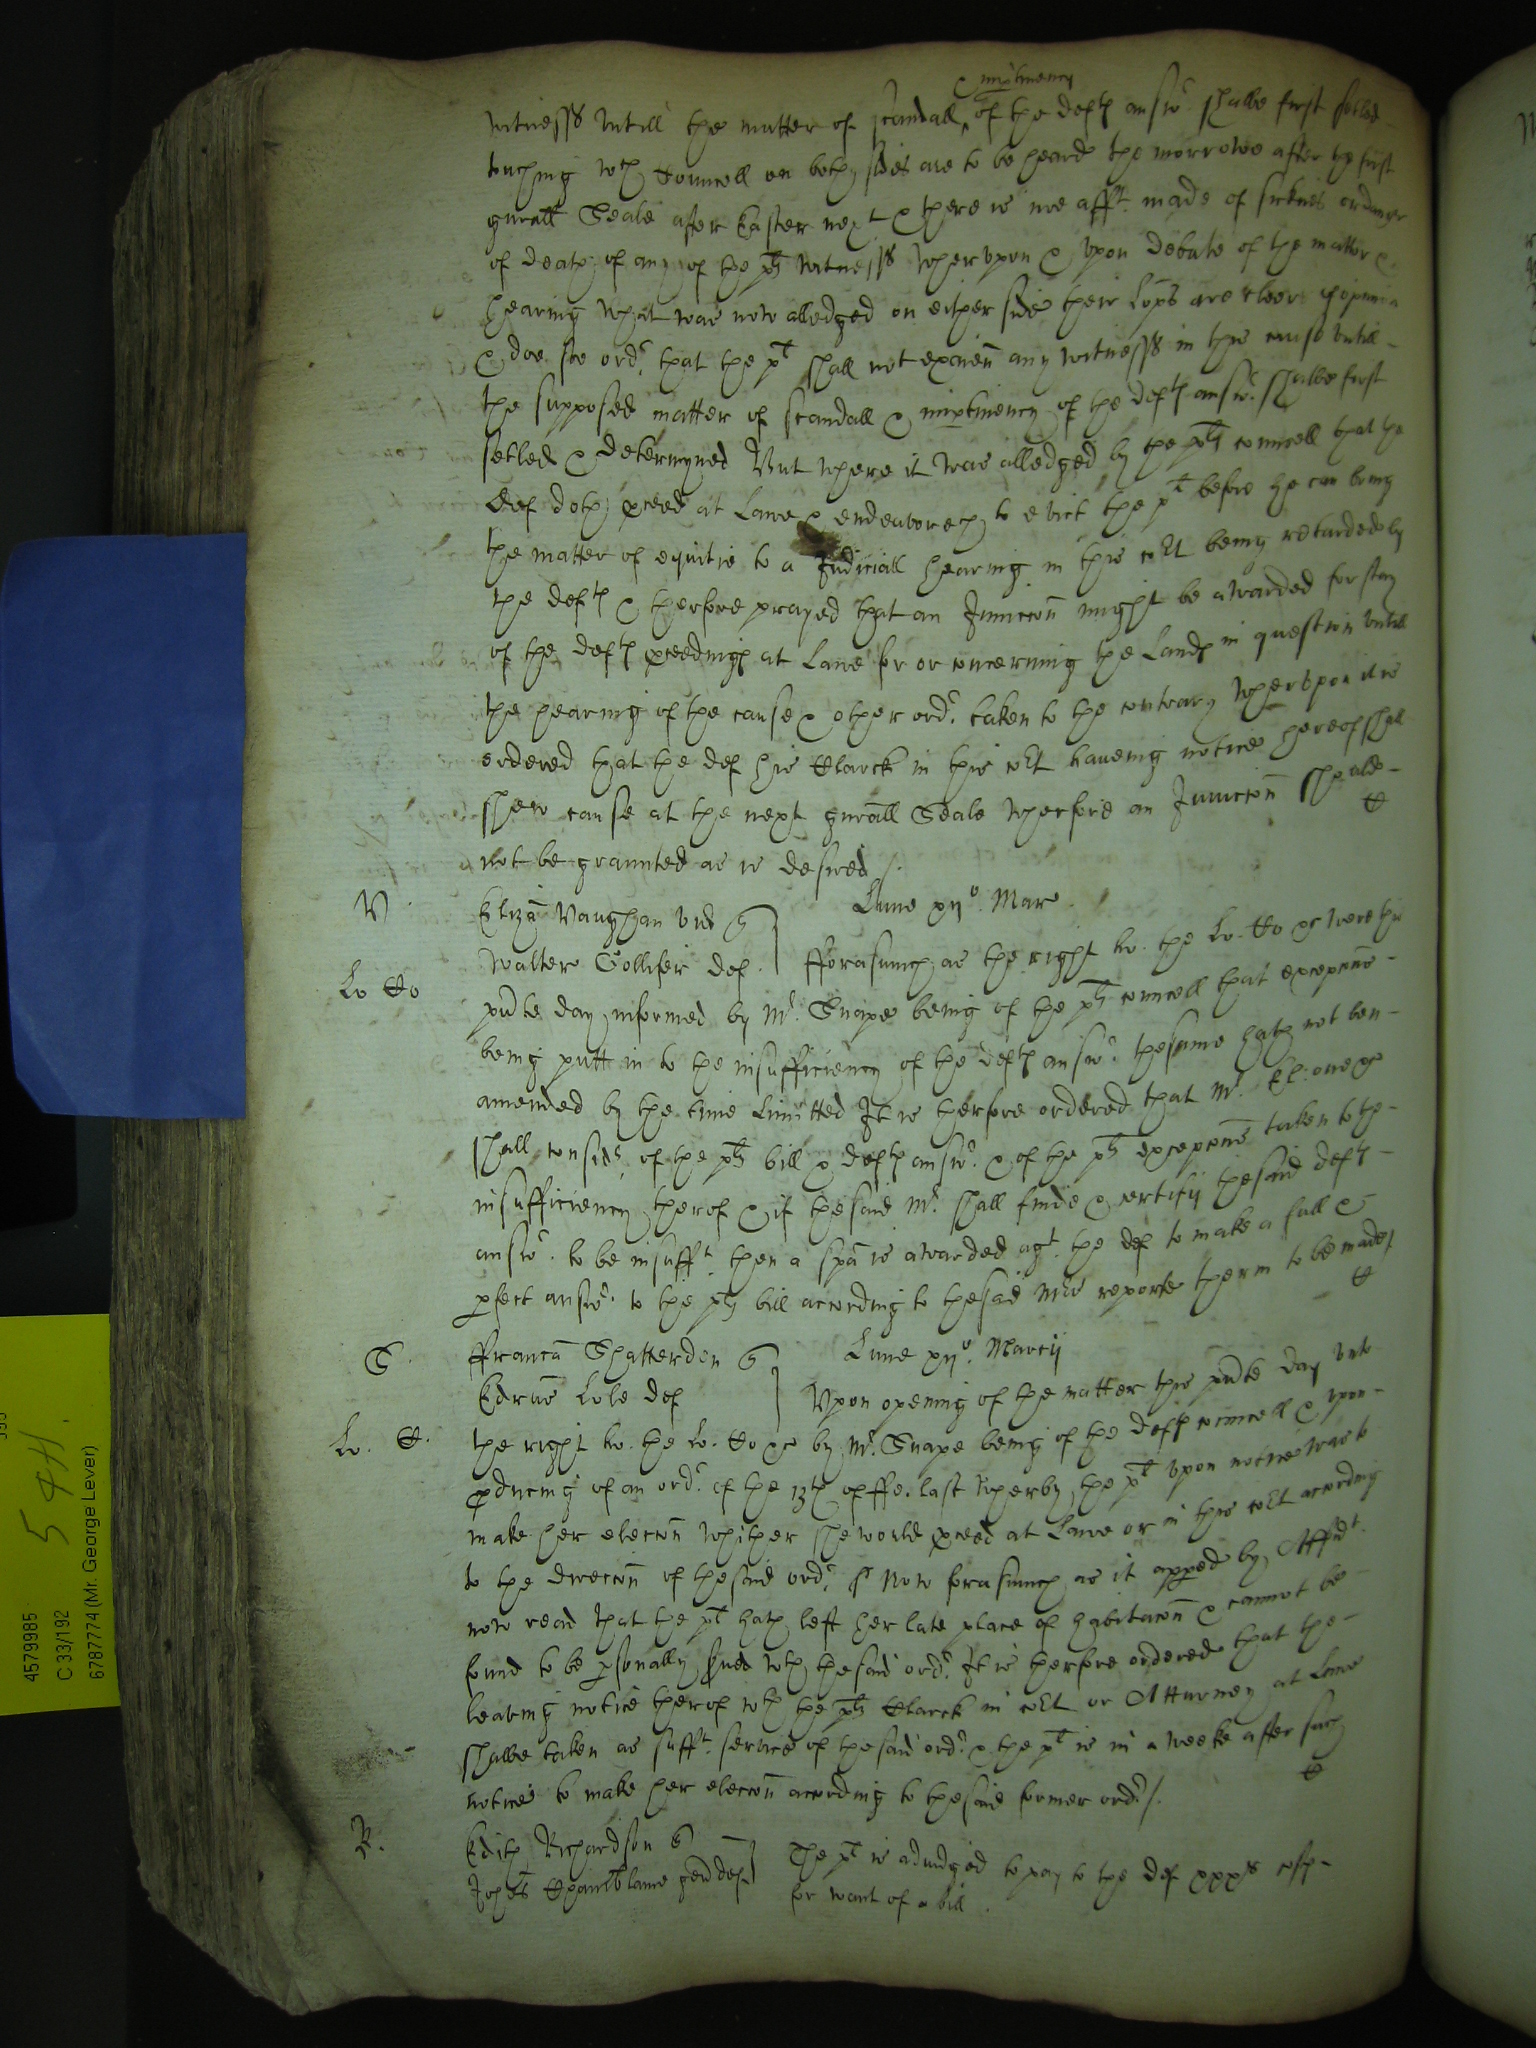 & imptinency
witnesses vntill the matter of scandall ^ of the deftes answr. shalbe first setled
touching wch Councell on both sides are to be heard the morrowe after the first
gnrall Seale after Easter next & there is noe afft. made of sicknes or danger
of death of any of the pltes witnesses Wherupon & vpon debate of the matter &
hearing what was now alledged on either side their Lops are cleere of opinion
& doe soe ordr. that the plt shall not examen any witnesses in this cause vntill
the supposed matter of scandall & imptinency of the deftes answr. shalbe first
setled & determyned But where it was alledged by the pltes councell that the
def doth pceed at Lawe & endeavoreth to evict the plt before he can bring
the matter of equitie to a Judiciall hearing in this court being retarded by
the deftes & therfore prayed that an Iniuccon might be awarded for stay
of the deftes pceedinges at Lawe for or concerning the Landes in question vntill
the hearing of the cause & other ordr. taken to the contrary Wherupon it is
ordered that the def his Clarck in this court haueing notice hereof shall
shew cause at the next gnrall Seale wherfore an Iniuccon should
not be graunted as is desired /. &
V. Eliza Vaughan vid q Lune xijo. Mar.
Walter Gollifer def. fforasmuch as the right ho. the Lo. Co &c were this
Lo Co pnte day informed by Mr. Snape being of the pltes councell that excepcons
being putt in to the insufficiency of the deftes answr. the same hath not ben
amended by the time Limitted It is therfore ordered that Mr.
shall considr. of the pltes bill & deftes answr. & of the pltes excepcons taken to the
insufficiency therof & if the said Mr. shall finde & certify the said deftes
answr. to be insufft. then a spa is awarded agt. the def to make a full &
pfect answr. to the pltes bill according to the said Mrs reporte therin to be made /
&
S. ffranca Shatterden q Lune xijo. Marcij
Edrus Lole def Vpon opening of the matter this pnte day vnto
Lo. C. the right ho. the Lo. Co &c by Mr. Snape being of the deftes councell & vpon
pducing of an ordr. of the 13th of ffe. last wherby the plt vpon notice was to
make her eleccon whither she would pceed at Lawe or in this court according
to the direccon of the said ordr. Now forasmuch as it appered by Affidt.
now read that the plt hath left her late place of habitacon & cannot be
found to be psonally serued wth the said ordr. It is therfore ordered that the
leaving notice therof wth the pltes Clarck in court or Atturney at Lawe
shalbe taken as sufft. service of the said ordr. & the plt is in a weeke after such
notice to make her eleccon according to the said former ordr. /. &
R. Edith Richardson q The plt is adiudged to pay to the def xxxs costes
Johes gen def for want of a bill.
4579985
C 33/192
6787774 (Mr. George Lever)